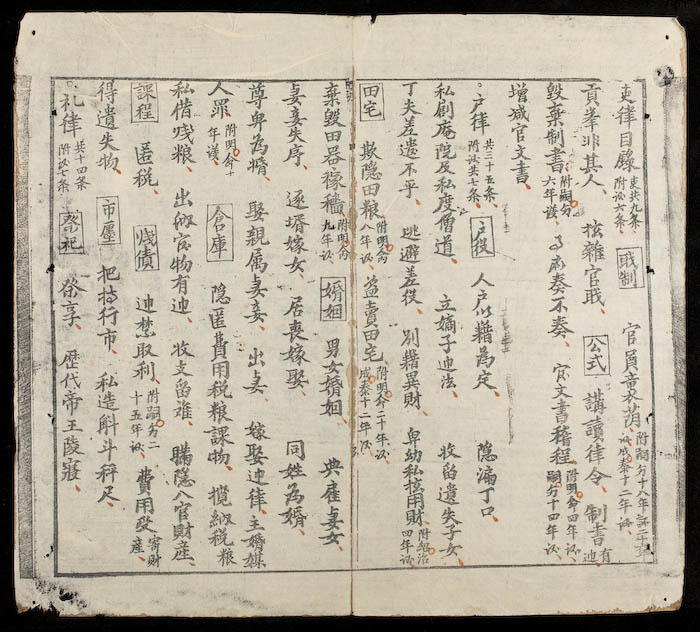 吏律目錄 吏共九条 附议七条 職制 官員襲荫 附嗣分十八年
貢挙非其人 擅離官職 公式 講讀律令 制書有违
毀棄制書 附嗣分六年议 事应奏不奏 官文書稽程 附明命四年议 嗣分十四年议
增减官文書
户律 共三十五条 附议共七条 户役 人户以籍為定 隐漏丁口
私剏庵院及私度僧道 立嫡子违法 收留遺失子女
丁夫差遣不平 逃避差役 别籍異財 卑幼私擅用財 附紹治四年议
田宅 欺隐田粮 附明命八年议 盗賣田宅 附明命二十年议 成泰十二年议
棄毀田器稼穡 九年议 婚姻 男女婚姻 典雇妻女
妻妾失序 逐壻嫁女 居喪嫁娶 同姓為婚
尊卑為婚 娶親属妻妾 出妻 嫁娶违律主婚媒
人罪 附明命十年议 倉庫 隐匿費用税粮課物 攬納税粮
私借戋粮 出納官物有违 收支留难 瞒隐入官財産
課程 匿税 戋债 违禁取利 附嗣分二十五年议 費用受寄財産
得遺失物 市廛 把持行市 私造斛斗秤尺
礼律 共十四条 附议七条 祭祀 祭享 歷代帝王陵寢